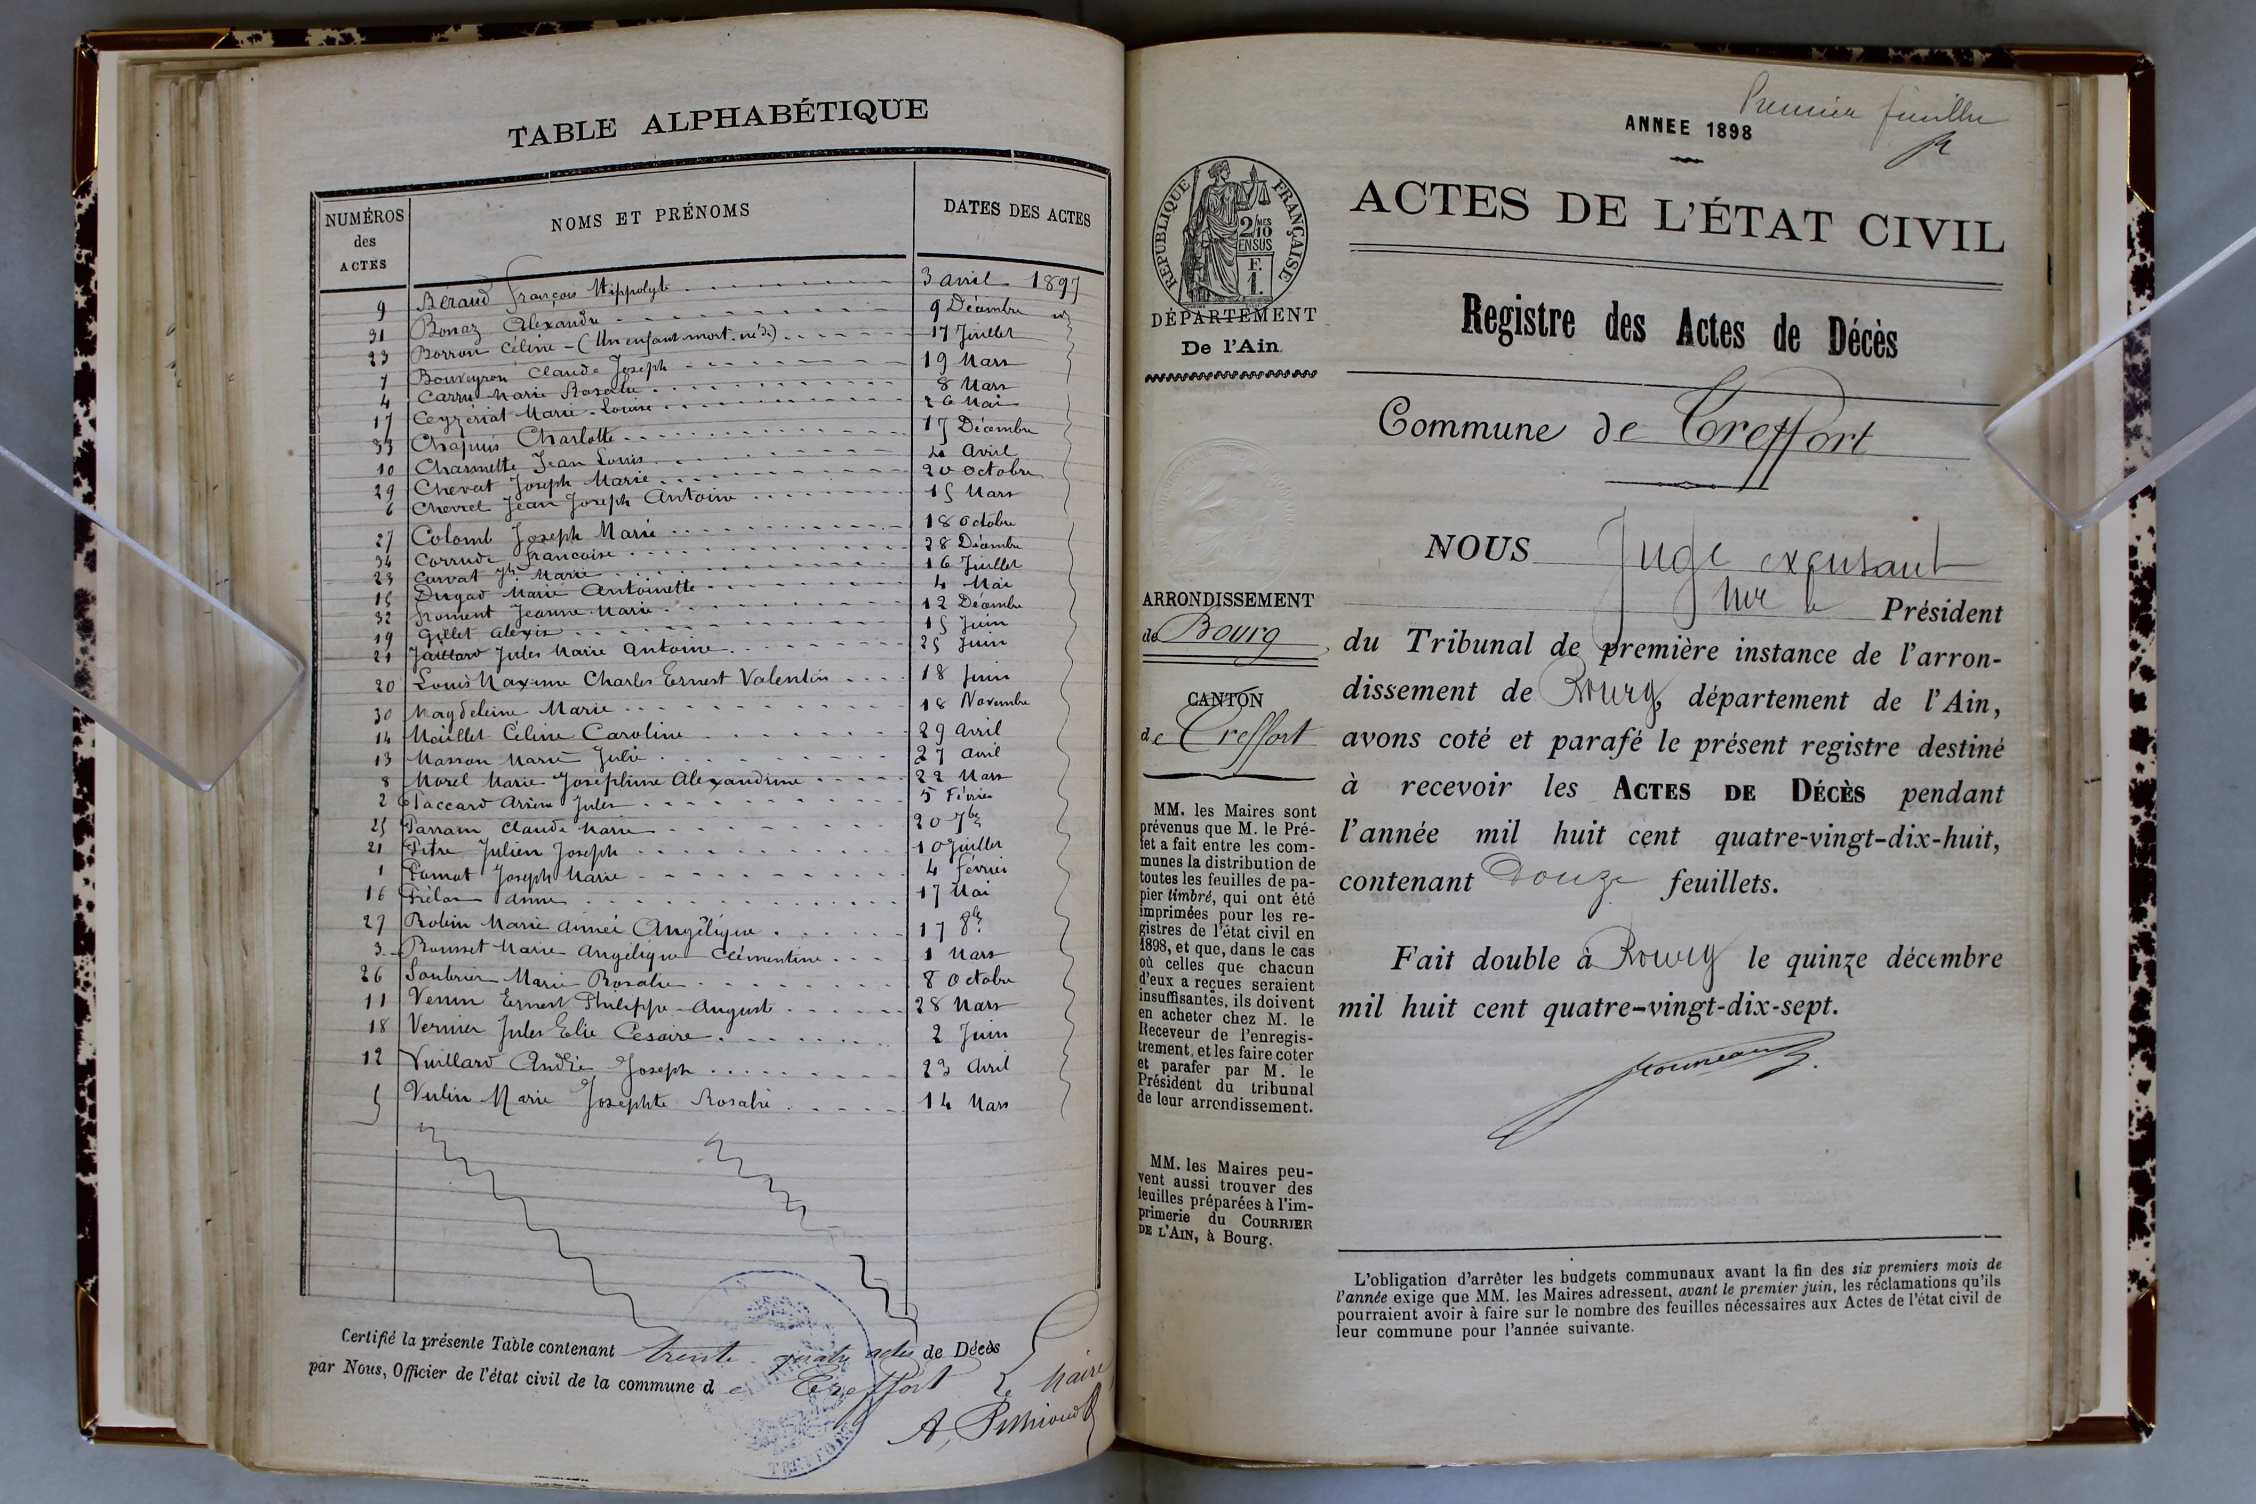 TABLE ALPHABÉTIQUE
NUMÉROS des ACTES
NOMS ET PRÉNOMS
DATES DES ACTES
9 Béraud François Hippolyte 3 avril 1897
31 Bonaz Alexandre 9 Décembre
23 Borron Céline - (Un enfant mort-né de) 17 Juillet
7 Bouveyron Claude Joseph 19 Mars
4 Carru Marie Rosalie 8 Mars
17 Ceyzériat Marie-Louise 26 Mai
33 Chapuis Charlotte 17 Décembre
10 Charnette Jean Louis 4 avril
29 Chevat Joseph Marie 20 octobre
6 Chevret Jean Joseph Antoine 15 Mars
27 Colomb Joseph Marie 18 octobre
34 Corrude francoise 28 Décembre
23 Curvat Jh Marie 16 Juillet
15 Dugad Marie Antoinette 4 Mai
32 froment Jeanne Marie 12 Décembre
19 Gillet Alexis 15 Juin
21 Jaillard Jules Marie Antoine 25 Juin
20 Louis Maxime Charles Ernest Valentin 18 Juin
30 Magdeleine Marie 18 Novembre
14 Maillet Céline Caroline 29 avril
13 Masson Marie Julie 27 avril
8 Morel Marie Joséphine Alexandrine 22 Mars
2 Paccard Jules 5 Février
25 Parram Claude Marie 20 7bre
21 Pitre Julien Joseph 10 Juillet
1 Joseph Marie 4 février
16 Anne 17 Mai
27 Robin Marie Aimée Angélique 17 8bre
3 Rousset Marie Angélique Clémentine 1 Mars
26 Soubrier Marie Rosalie 8 octobre
11 Venin Ernest Philippe-August 28 Mars
18 Vernier Jules Elie Césaire 2 Juin
12 Vuillard André Joseph 23 Avril
5 Vulin Marie Josephte Rosalie 14 Mars
Certifié la présente Table contenant trente-quatre actes de Décès
par Nous, Officier de l'état civil de la commune de Treffort
Le Maire
Premier feuillet
ANNEE 1898
RÉPUBLIQUE FRANÇAISE
2/10 MES EN SUS
F. 1.
ACTES DE L'ÉTAT CIVIL
Registre des Actes de Décès
DÉPARTEMENT
De l'Ain
Commune de Treffort
NOUS Juge excusant
Mr le Président
du Tribunal de première instance de l'arron-
dissement de Bourg, département de l'Ain,
avons coté et parafé le présent registre destiné
à recevoir les ACTES DE DÉCÈS pendant
l'année mil huit cent quatre-vingt-dix-huit,
contenant Douze feuillets.
Fait double à Bourg le quinze décembre
mil huit cent quatre-vingt-dix-sept.
ARRONDISSEMENT
de Bourg
CANTON
de Treffort
MM. les Maires sont
prévenus que M. le Pré-
fet a fait entre les com-
munes la distribution de
toutes les feuilles de pa-
pier timbré, qui ont été
imprimées pour les re-
gistres de l'état civil en
1898, et que, dans le cas
où celles que chacun
d'eux a reçues seraient
insuffisantes, ils doivent
en acheter chez M. le
Receveur de l'enregis-
trement, et les faire coter
et parafer par M. le
Président du tribunal
de leur arrondissement.
MM. les Maires peu-
vent aussi trouver des
feuilles préparées à l'im-
primerie du COURRIER
DE L'AIN, à Bourg.
L'obligation d'arrêter les budgets communaux avant la fin des six premiers mois de
l'année exige que MM. les Maires adressent, avant le premier juin, les réclamations qu'ils
pourraient avoir à faire sur le nombre des feuilles nécessaires aux Actes de l'état civil de
leur commune pour l'année suivante.